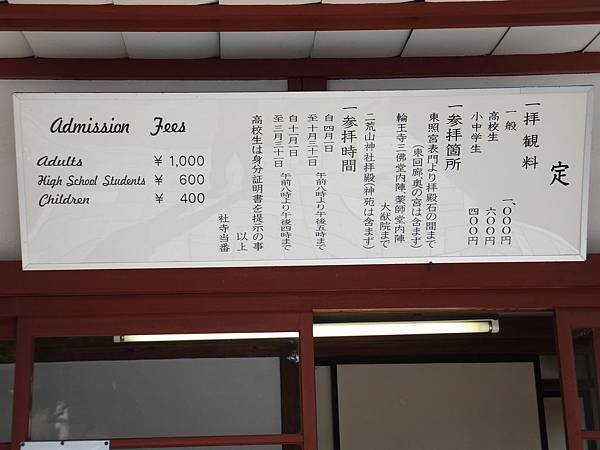 定
一拝観料
一般 一、〇〇〇円
高校生 六〇〇円
小中学生 四〇〇円
一参拝箇所
東照宮表門より拝殿石の間まで
（東回廊奥の宮は含まず）
輪王寺三佛堂内陣、薬師堂内陣
大猷院まで
二荒山神社拝殿（神苑は含まず）
一参拝時間
自四月一日
至十月三十一日 午前八時より午後五時まで
自十一月一日
至三月三十一日 午前八時より午後四時まで
高校生は身分証明書を提示の事
以上
社寺当番
Admission Fees
Adults ¥ 1,000
High School Students ¥ 600
Children ¥ 400